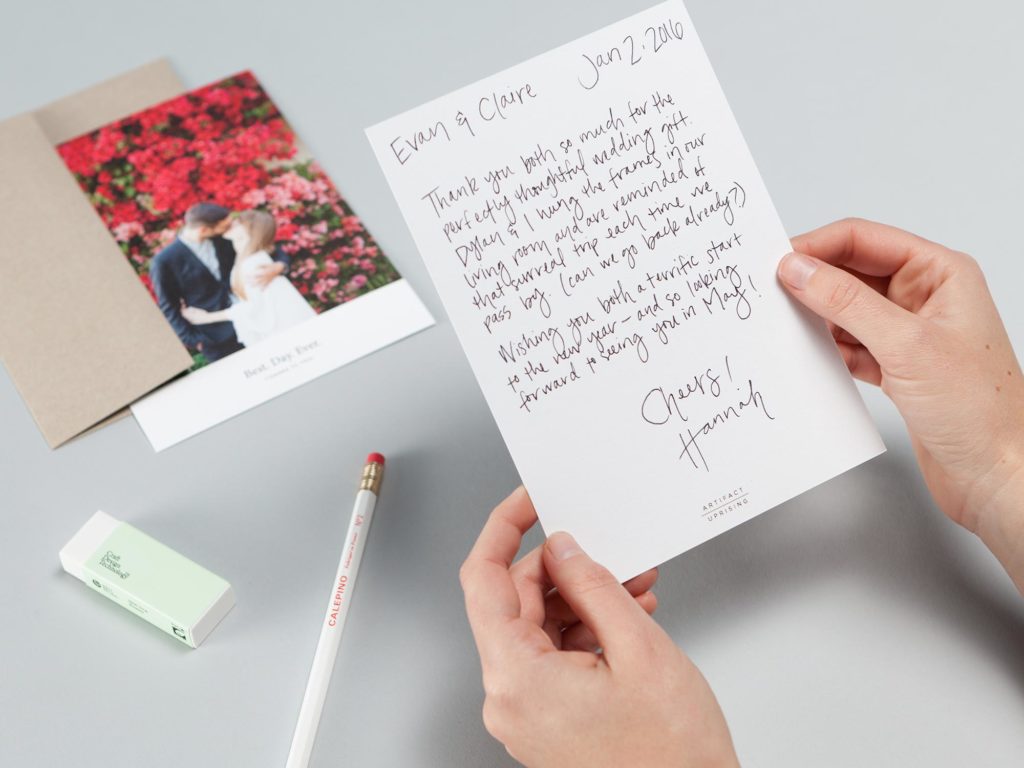 Jan 2, 2016
Evan & Claire
Thank you both so much for the
perfectly thoughtful wedding gift.
Dylan & I hung the frames in our
living room and are reminded of
that surreal trip each time we
pass by. (can we go back already?)
Wishing you both a terrific start
to the new year – and so looking
forward to seeing you in May!
Cheers!
Hannah
ARTIFACT
UPRISING
Best. Day. Ever.
Craft
Design
Technology
CALEPINO
Nº2